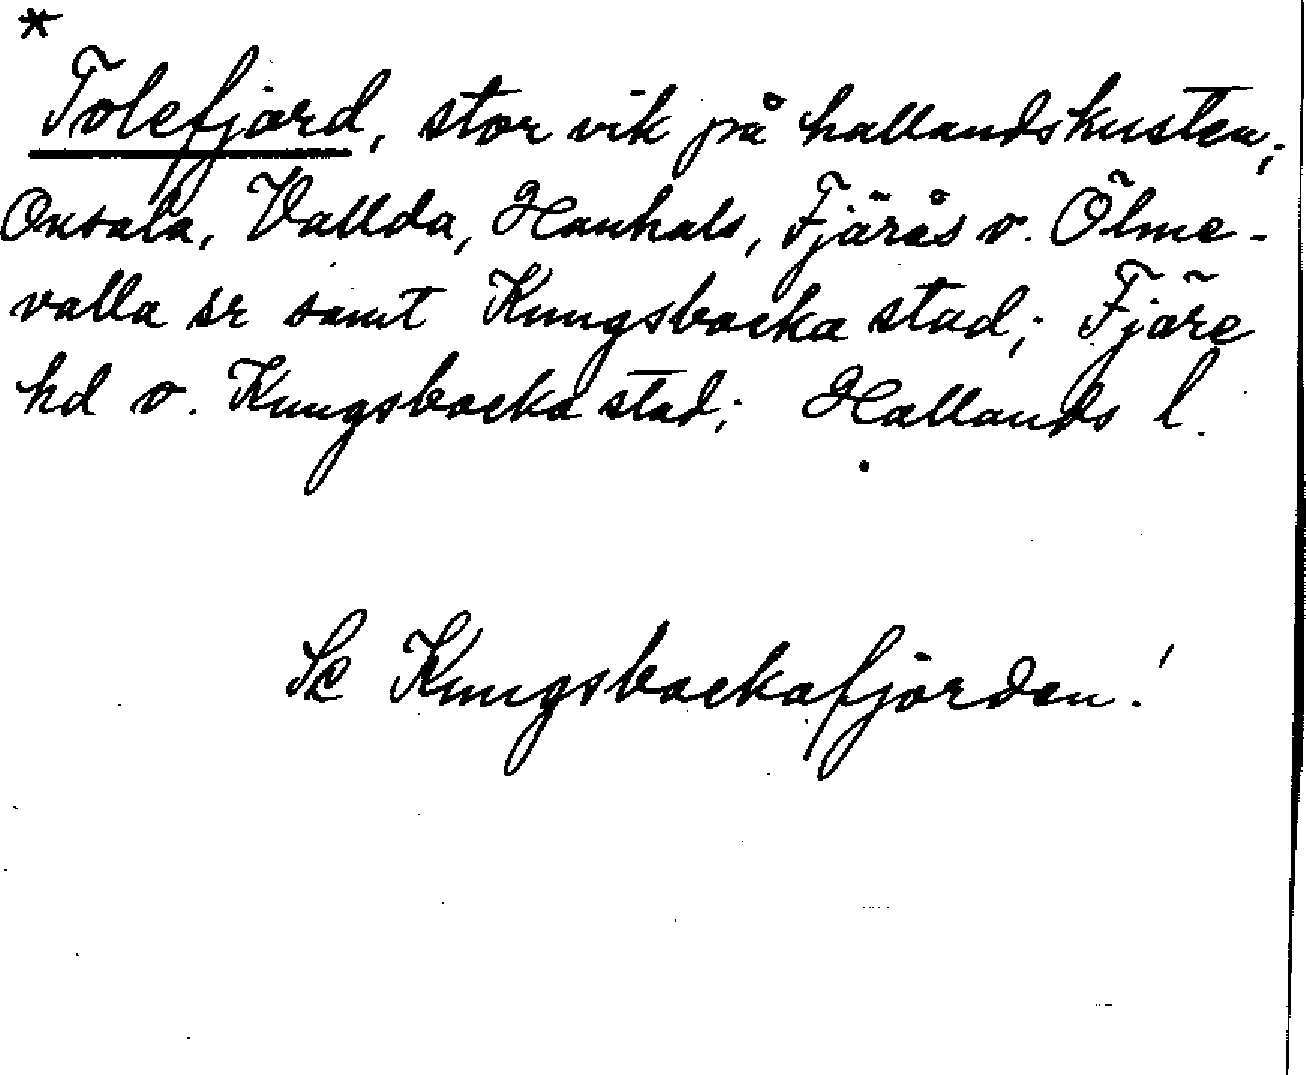 *
Tolefjord, stor vik på hallandskusten;
Onsala, Vallda, Hanhals, Fjärås o. Ölme-
valla sr samt Kungsbacka stad; Fjäre
hd o. Kungsbacka stad; Hallands l.
Se Kungsbackafjorden!